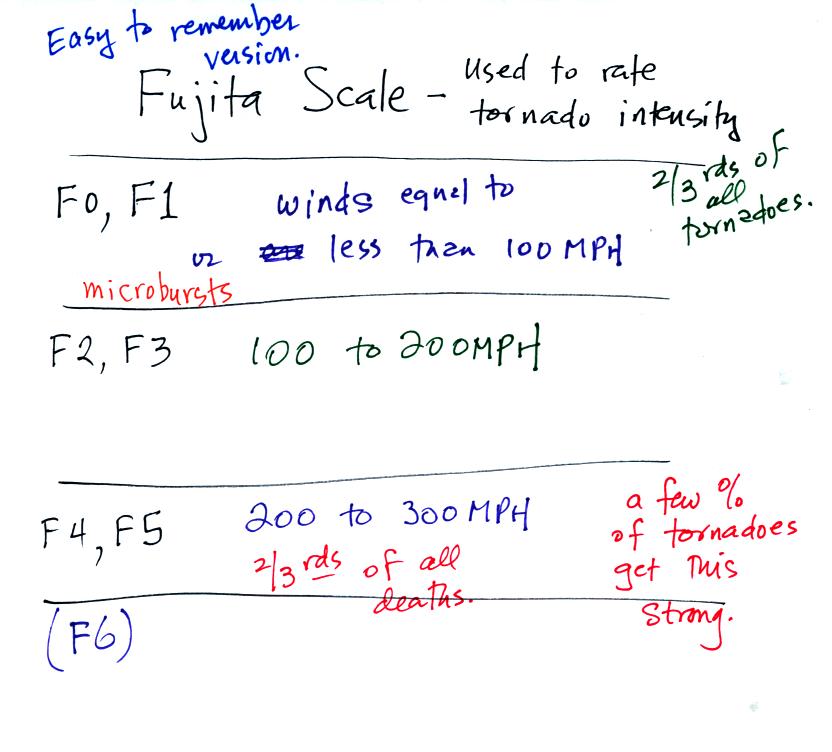 Easy to remember
version.
Fujita Scale - Used to rate
tornado intensity
F0, F1 winds equal to 2/3 rds of
all
tornadoes.
or less than 100 MPH
microbursts
F2, F3 100 to 200 MPH
F4, F5 200 to 300 MPH a few %
of tornadoes
2/3 rds of all get this
deaths. strong.
(F6)